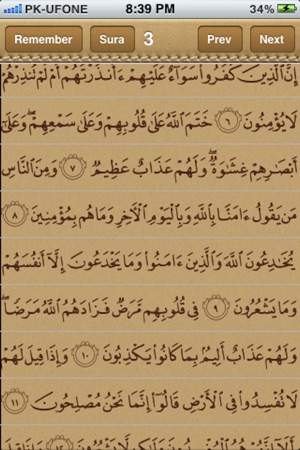 PK-UFONE 8:39 PM 34%
Remember Sura 3 Prev Next
إِنَّ ٱلَّذِينَ كَفَرُوا۟ سَوَآءٌ عَلَيْهِمْ ءَأَنذَرْتَهُمْ أَمْ لَمْ تُنذِرْهُمْ
لَا يُؤْمِنُونَ ٦ خَتَمَ ٱللَّهُ عَلَىٰ قُلُوبِهِمْ وَعَلَىٰ سَمْعِهِمْ ۖ وَعَلَىٰٓ
أَبْصَٰرِهِمْ غِشَٰوَةٌ ۖ وَلَهُمْ عَذَابٌ عَظِيمٌ ٧ وَمِنَ ٱلنَّاسِ
مَن يَقُولُ ءَامَنَّا بِٱللَّهِ وَبِٱلْيَوْمِ ٱلْءَاخِرِ وَمَا هُم بِمُؤْمِنِينَ ٨
يُخَٰدِعُونَ ٱللَّهَ وَٱلَّذِينَ ءَامَنُوا۟ وَمَا يَخْدَعُونَ إِلَّآ أَنفُسَهُمْ
وَمَا يَشْعُرُونَ ٩ فِى قُلُوبِهِم مَّرَضٌ فَزَادَهُمُ ٱللَّهُ مَرَضًا ۖ
وَلَهُمْ عَذَابٌ أَلِيمٌۢ بِمَا كَانُوا۟ يَكْذِبُونَ ١٠ وَإِذَا قِيلَ لَهُمْ
لَا تُفْسِدُوا۟ فِى ٱلْأَرْضِ قَالُوٓا۟ إِنَّمَا نَحْنُ مُصْلِحُونَ ١١
أَلَآ إِنَّهُمْ هُمُ ٱلْمُفْسِدُونَ وَلَٰكِن لَّا يَشْعُرُونَ ١٢ وَإِذَا